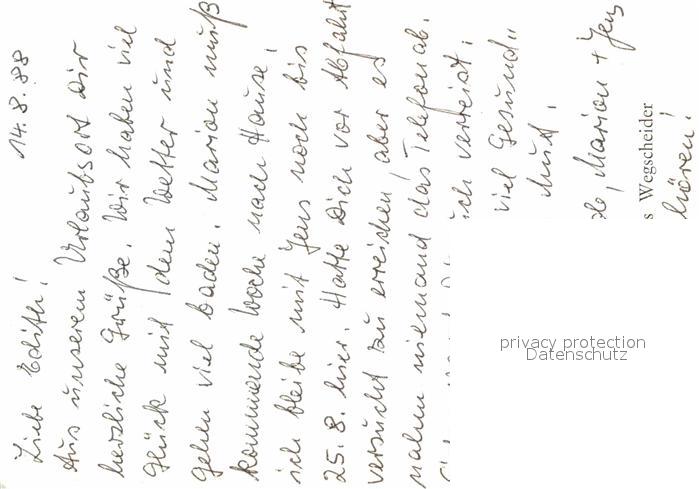 14.8.88
Liebe Edith!
Aus unserem Urlaubsort Dir
herzliche Grüße. Wir haben viel
Glück mit dem Wetter und
gehen viel baden. Marion muß
kommende Woche nach Hause,
ich bleibe mit Jens noch bis
25.8. hier. Hatte Dich vor Abfahrt
versucht zu erreichen, aber es
nahm niemand das Telefon ab.
verreist.
viel Gesund"
Mut.
Marion + Jens
Wegscheider
hören!
privacy protection
Datenschutz